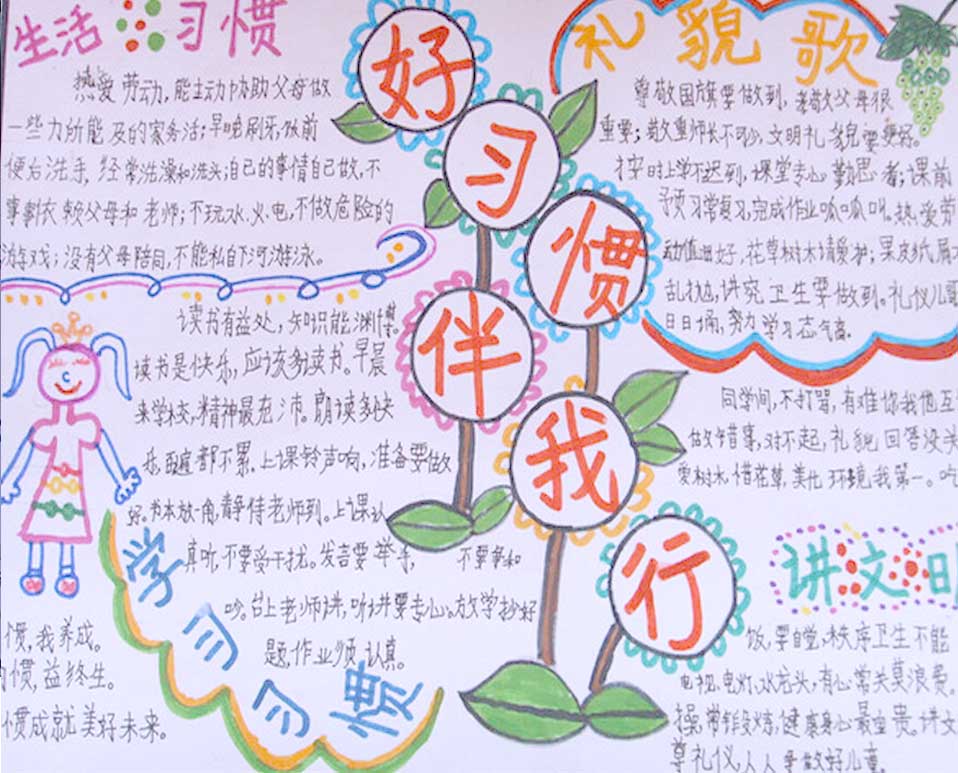 生活习惯
热爱劳动,能主动协助父母做
一些力所能及的家务活;早晚刷牙,饭前
便后洗手,经常洗澡和洗头;自己的事情自己做,不
事事依赖父母和老师;不玩水、火、电,不做危险的
游戏;没有父母陪同,不能私自下河游泳。
好习惯伴我行
礼貌歌
尊敬国旗要做到,孝敬父母很
重要;敬重师长不可少,文明礼貌要更好。
按时上学不迟到,课堂专心勤思考;课前
预习常复习,完成作业呱呱叫。热爱劳
动值得好,花草树木请爱护;果皮纸屑不
乱扔,讲究卫生要做到。礼仪儿歌
日日诵,努力学习志气高。
读书有益处,知识能渊博。
读书是快乐,应该多读书。早晨
来学校,精神最充沛。朗读多快
乐,都不累。上课铃声响,准备要做
好。书本放一角,静待老师到。上课认
真听,不要受干扰。发言要举手,不要争和
吵。台上老师讲,听讲要专心。放学抄好
题,作业须认真。
学习习惯
惯,我养成。
惯,益终生。
惯成就美好未来。
同学间,不打骂,有难你我他互
做错事,对不起,礼貌回答没关
爱树木,惜花草,美化环境我第一。吃
讲文明
饭,要自觉,秩序卫生不能
电视、电灯、水龙头,有心常关莫浪费。
操,常锻炼,健康身心最宝贵。讲文
尊礼仪,人人争做好儿童。